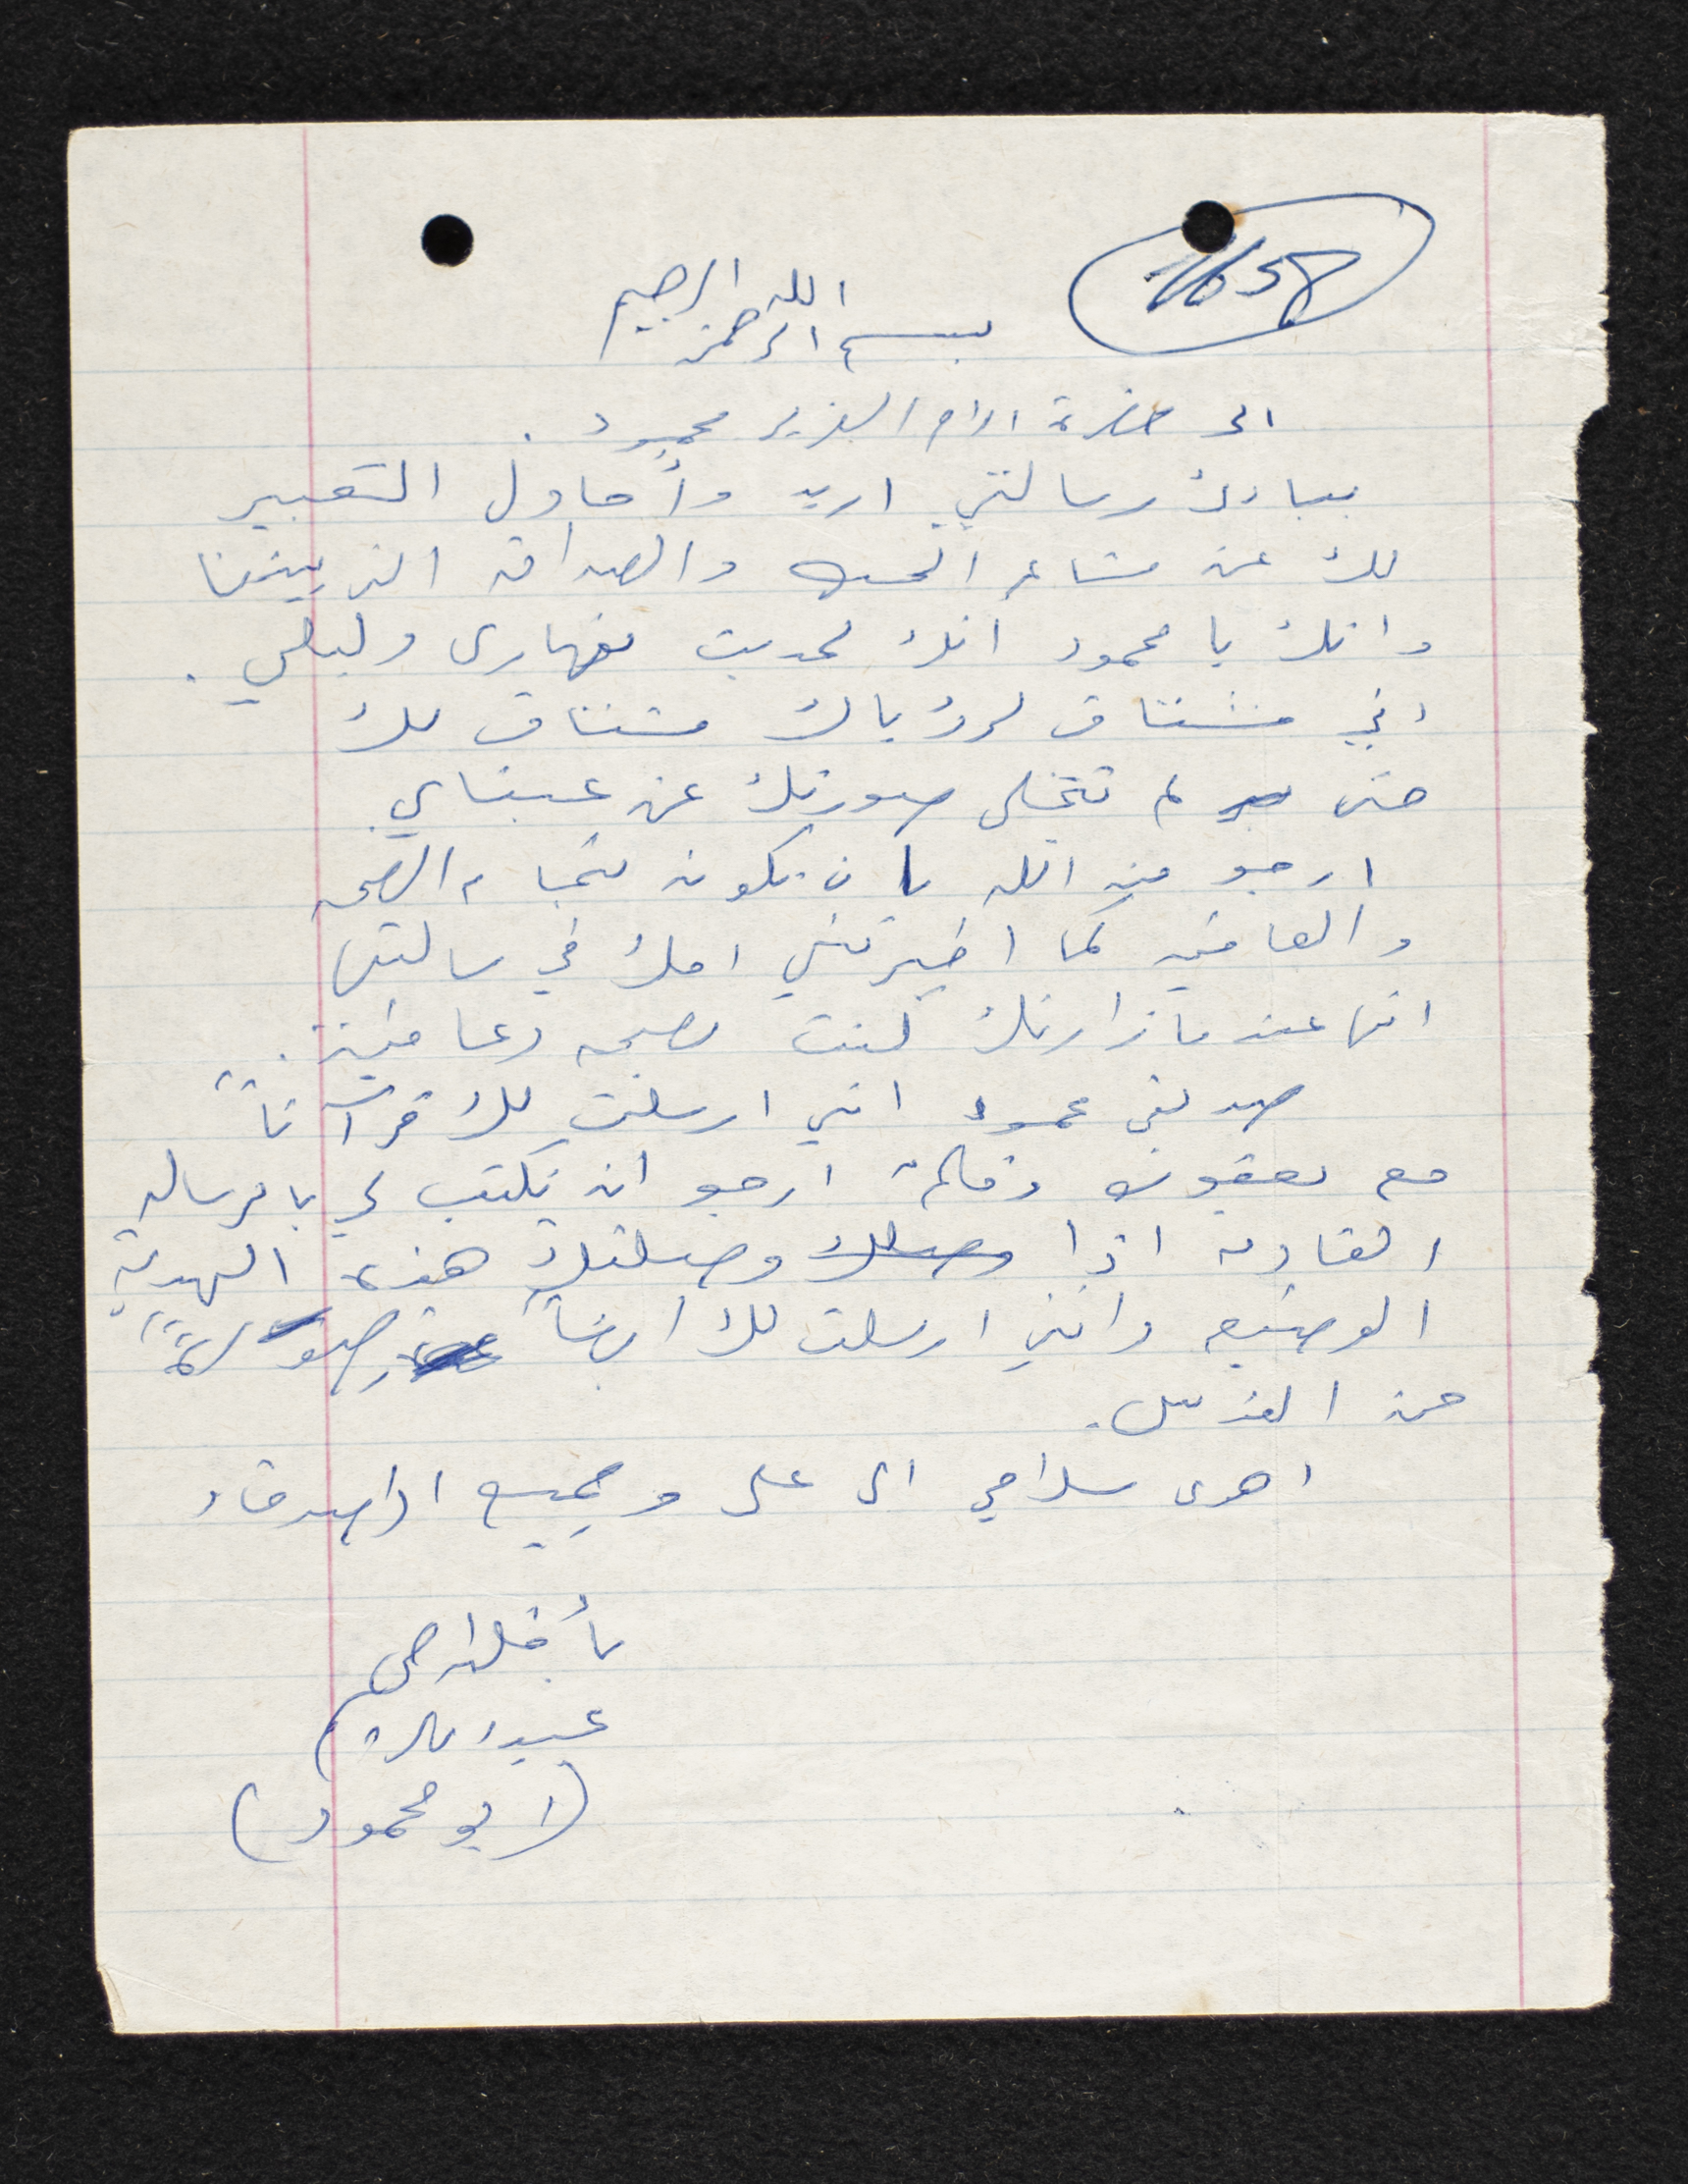 1658
بسم الله الرحمن الرحيم
الى حضرة الاخ العزيز محمود .
ببادئ رسالتي اريد وأحاول التعبير
لك عن مشاعر الحب والصداقه التي بيننا
وانك يا محمود انك لحديث نهاري وليلي .
اني مشتاق لرؤياك مشتاق لك
حتى لم تتخلى صورتك عن عيناي .
ارجو من الله بان يكون بتمام الصحه
والعافيه كما اخبرتني امك في رسالتها
انها عندما زارتك كنت بصحه وعافية .
صديقي محمود انني ارسلت لك قرآناً
مع يعقوب وقالمة ارجو ان تكتب لي بالرساله
القادمه اذا وصلك وصلتك هذه الهدية
الوضيعه وانني ارسلت لك ايضاً صورةً
من القدس .
اهدى سلامي الى على وجميع الاصدقاء
بأخلاص
عبدالله
(ابو محمود)